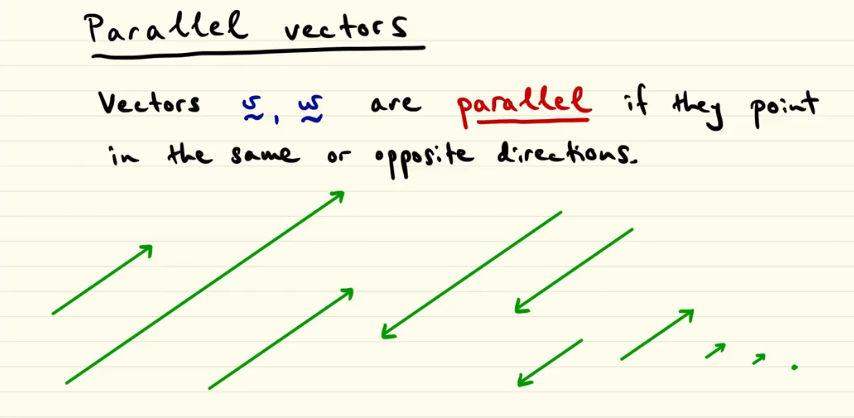 Parallel vectors
Vectors v, w are parallel if they point
in the same or opposite directions.